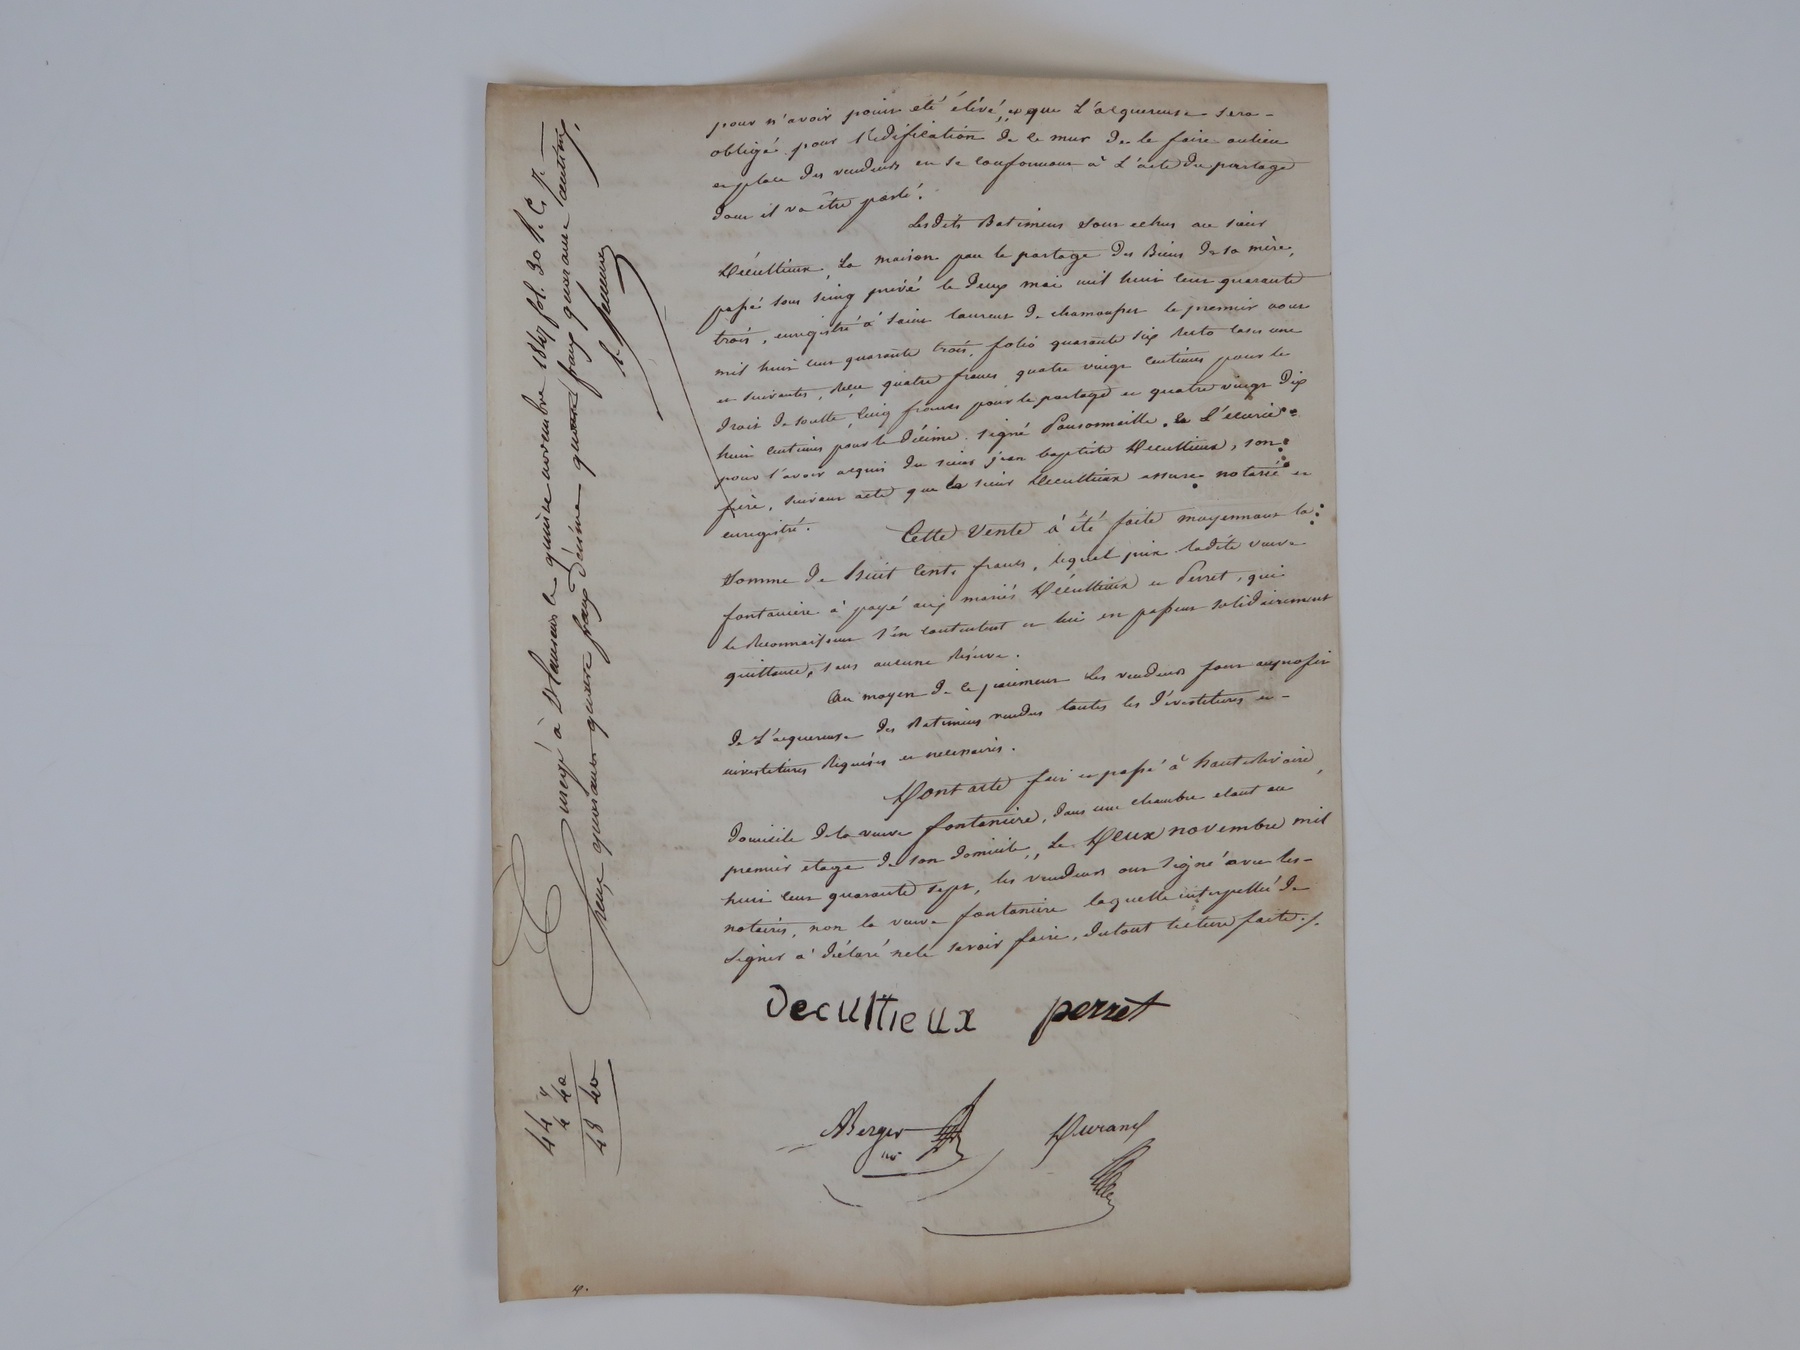 pour n'avoir point été élevé, et que L'acquereuse sera
obligé pour l'édification de ce mur de le faire aulieu
et place des vendeurs en se conformant à L'acte de partage
dont il va être parlé.
Lesdits Batimens sont echus au sieur
Décultieux, La maison par le partage des Biens de sa mère,
passé sous seing privé le deux mai mil huit cent quarante
trois, enregistré à saint laurent de chamousset le premier aout
mil huit cent quarante trois, folio quarante six recto cases une
et suivantes, Reçu quatre francs quatre vingt centimes pour le
droit de soulte, cinq francs pour le partage et quatre vingt dix
huit centimes pour le décime. signé Ponsonnaille. et L'écurie
pour l'avoir acquis du sieur jean baptiste Decultieux, son
frère, suivant acte que le sieur Decultieux assure notarié et
enregistré.
Cette Vente à été faite moyennant la
Somme de huit cents francs, lequel prix ladite veuve
fontanière à payé aux mariés Décultieux et Perret, qui
le Reconnaissent s'en contentent et lui en passent solidairement
quittance, sans aucune Réserve.
Au moyen de ce paiement les vendeurs font auprofit
de L'acquereuse des Batimens vendus toutes les dévestitures et
investitures Requises et necessaires.
Dont acte fait et passé à hauterivoire,
domicile de la veuve fontanière, dans une chambre etant au
premier etage de son domicile, Le Deux novembre mil
huit cent quarante sept, les vendeurs ont signé avec les
notaires, non la veuve fontanière laquelle interpellée de
signer a déclaré ne le savoir faire, dutout lecture faite./.
Decultieux perret
ABerger Durand
Enregé à St Laurent le quinze novembre 1847 fol. 30 Ro C. 7.
Reçu quarante quatre francs Décime quatre francs quarante centimes,
44 "
4 40
48 40